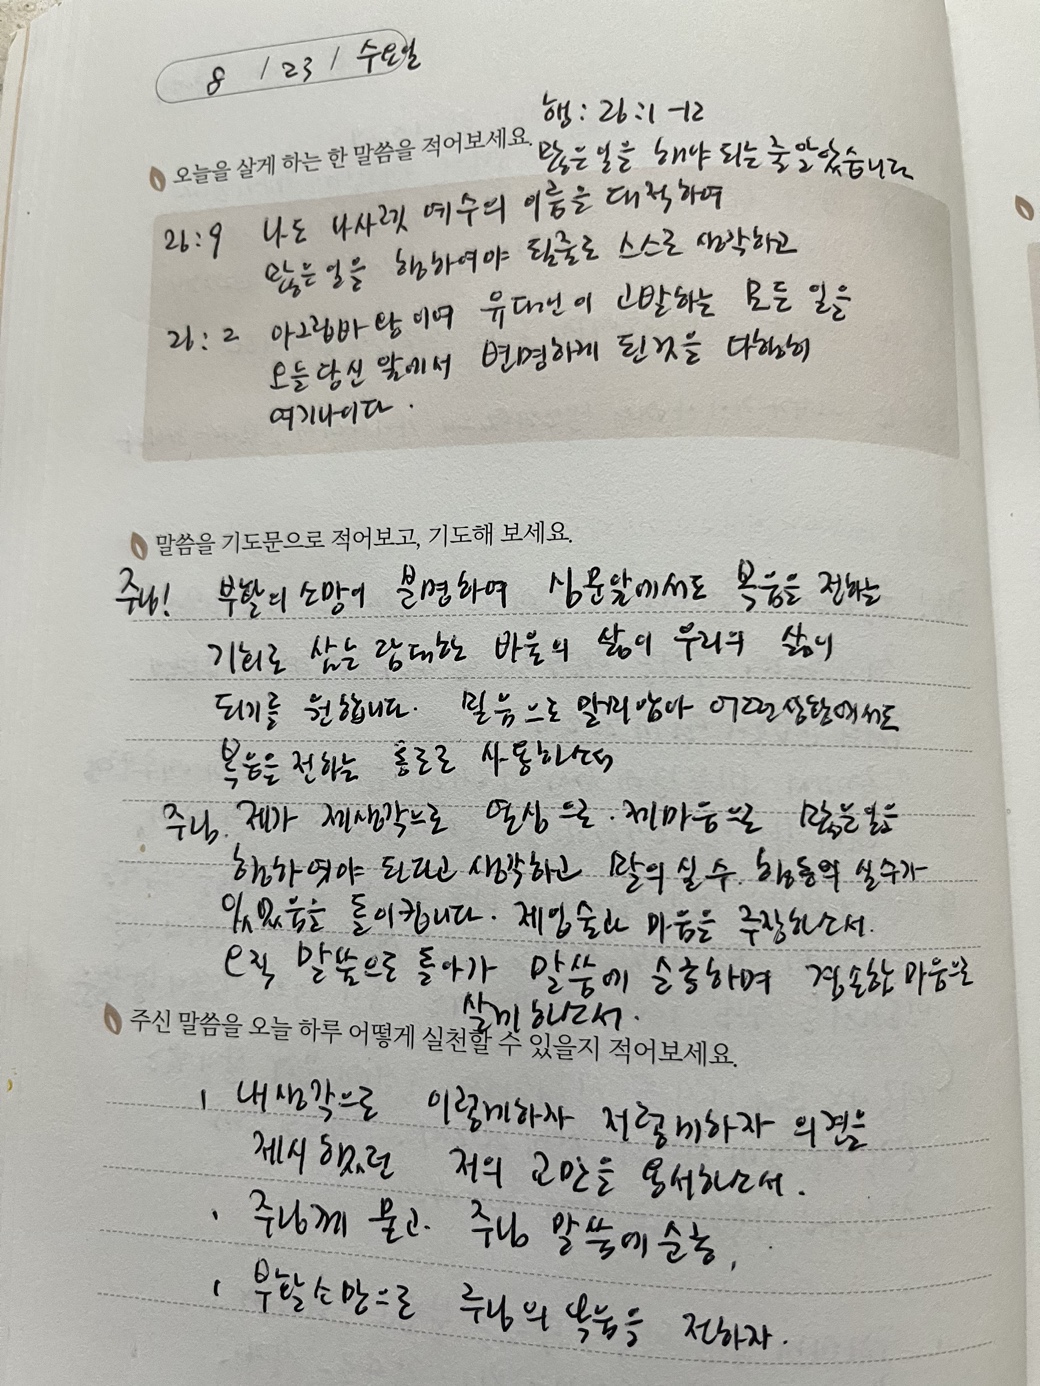 8 / 23 / 수요일
행: 26:1-12
오늘을 살게 하는 한 말씀을 적어보세요.
많은 일을 해야 되는줄 알았습니다
26:9 나도 나사렛 예수의 이름을 대적하여
많은 일을 행하여야 될줄로 스스로 생각하고
26:2 아그립바 왕이여 유대인이 고발하는 모든 일을
오늘 당신 앞에서 변명하게 된것을 다행히
여기나이다.
말씀을 기도문으로 적어보고, 기도해 보세요.
주님! 부활의 소망이 분명하여 심문앞에서도 복음을 전하는
기회로 삼는 담대한 바울의 삶이 우리의 삶이
되기를 원합니다. 믿음으로 말미암아 어떤상황에서도
복음을 전하는 통로로 사용하소서
주님. 제가 제생각으로 열심으로. 제마음으로 많은일을
행하여야 된다고 생각하고 말의 실수. 행동의 실수가
있었음을 돌이킵니다. 제입술과 마음을 주장하소서.
오직 말씀으로 돌아가 말씀에 순종하며 겸손한 마음으로
살게 하소서.
주신 말씀을 오늘 하루 어떻게 실천할 수 있을지 적어보세요.
내생각으로 이렇게하자 저렇게하자 의견을
제시 했던 저의 교만을 용서하소서.
주님께 묻고. 주님 말씀에 순종,
부활소망으로 주님의 복음을 전하자.